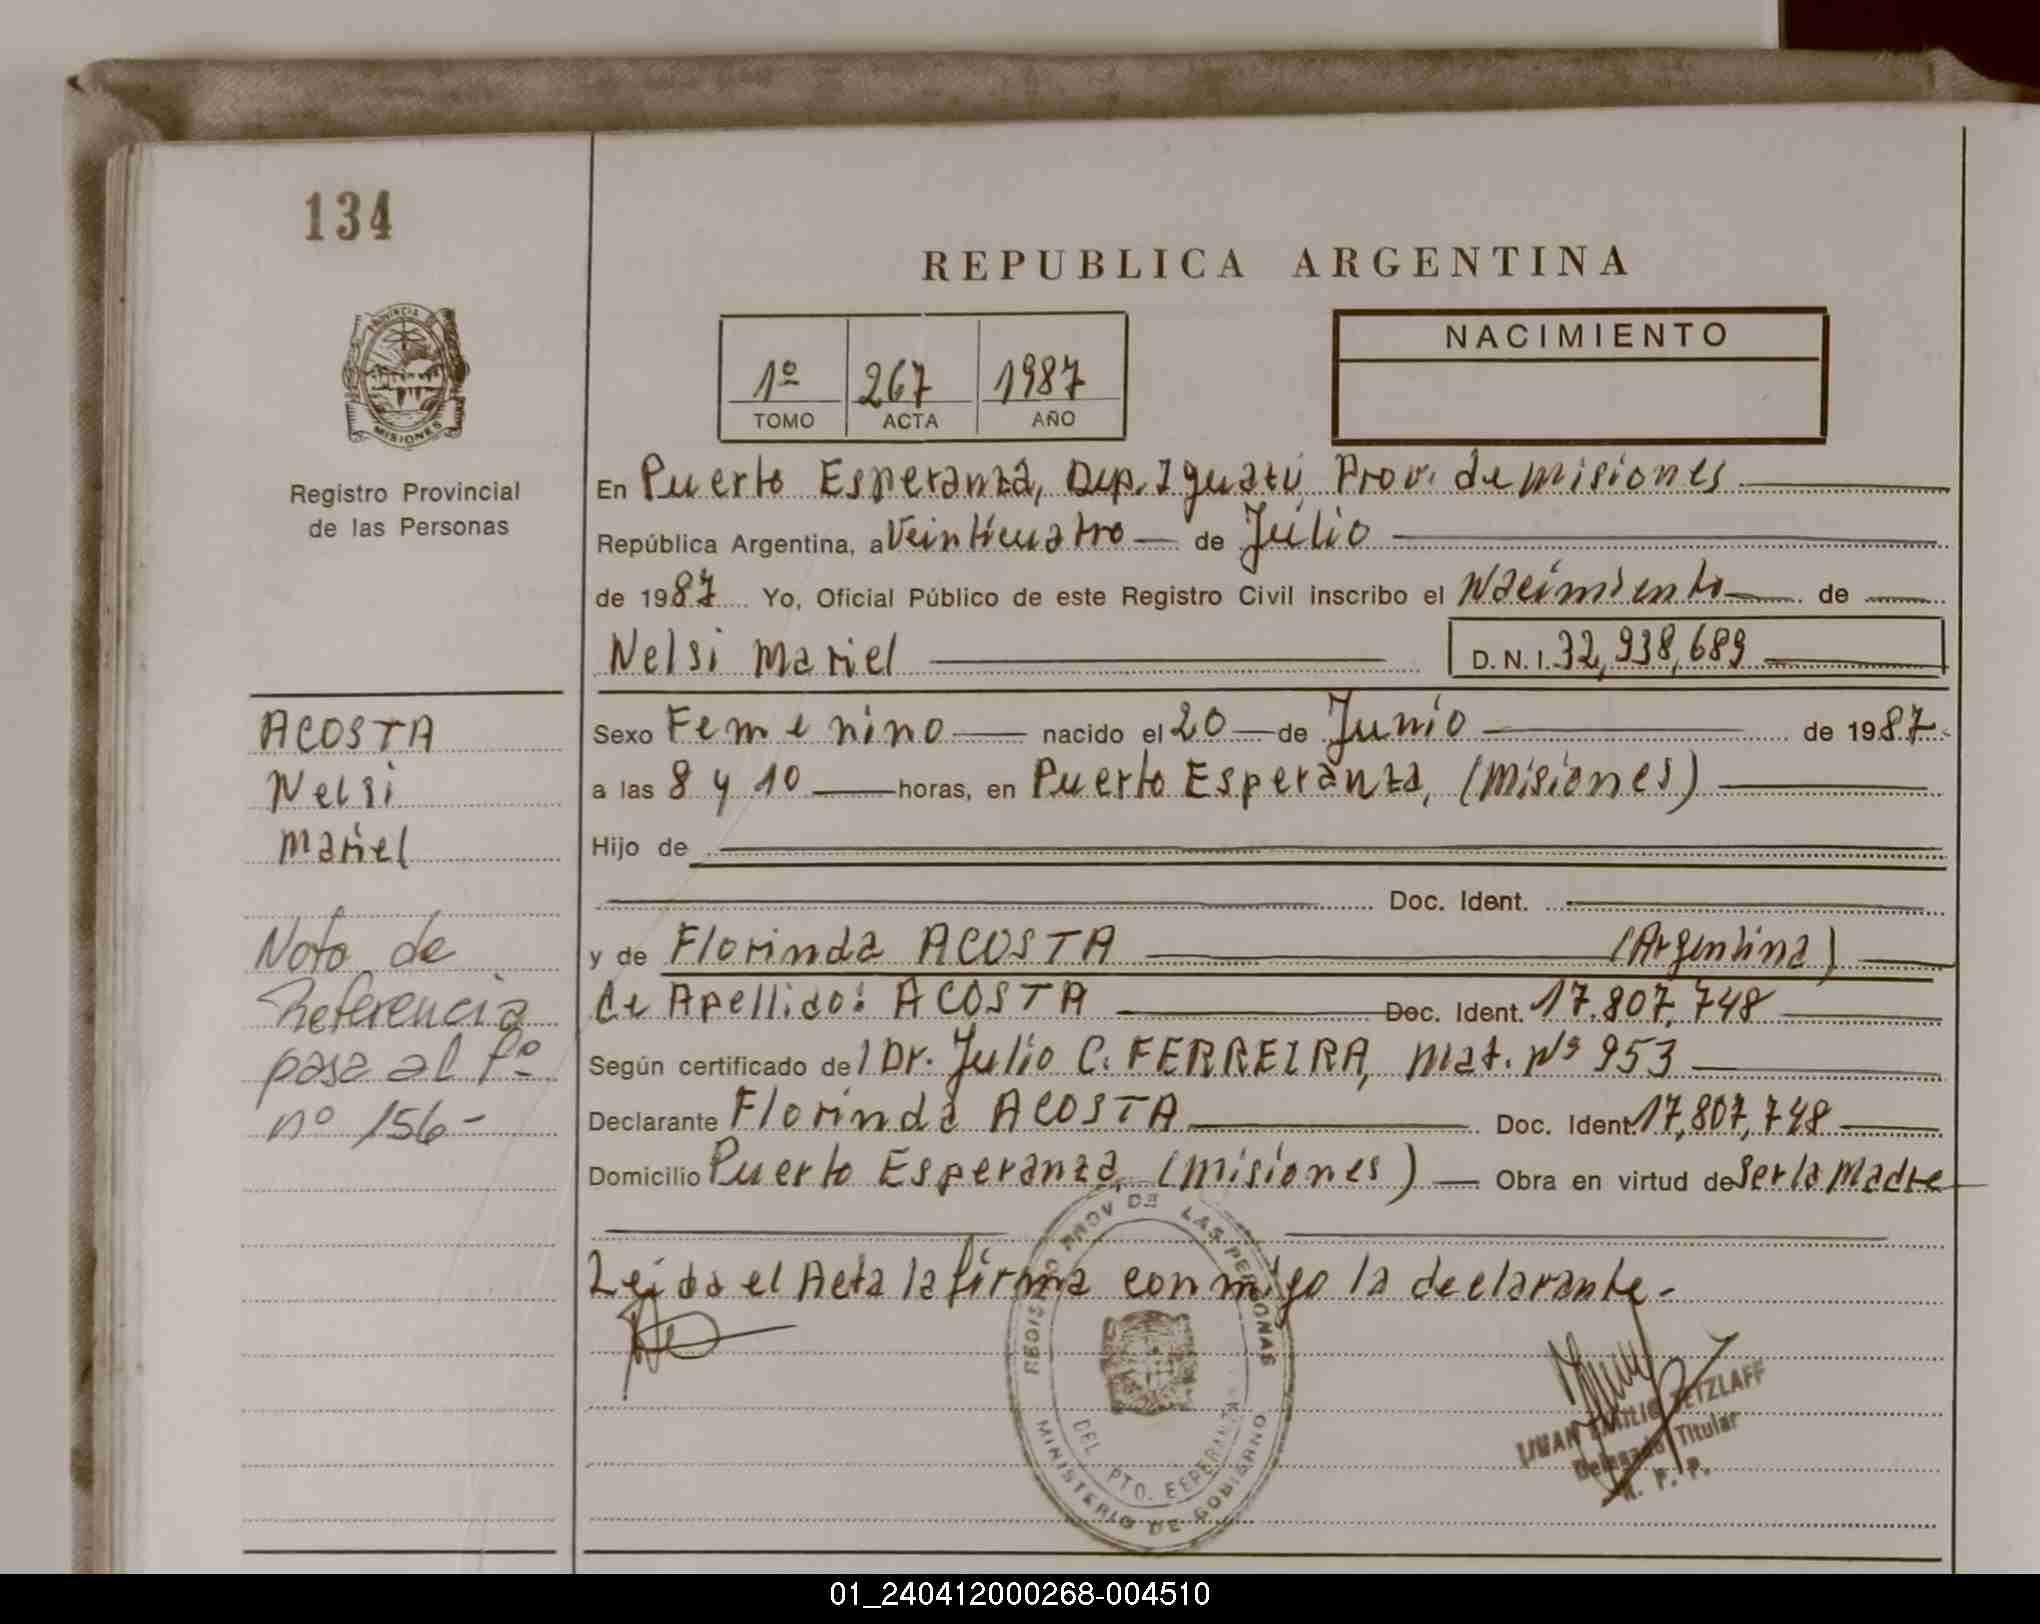 134
REPUBLICA ARGENTINA
NACIMIENTO
1º 267 1987
TOMO ACTA AÑO
PROVINCIA DE
MISIONES
Registro Provincial
de las Personas
En Puerto Esperanza, Dep. Iguazú Prov. de Misiones
República Argentina, a Veinticuatro de Julio
de 1987 Yo, Oficial Público de este Registro Civil inscribo el Nacimiento de
Nelsi Mariel D. N. I. 32,938,689
ACOSTA
Nelsi
Mariel
Nota de
Referencia
pasa al Fº
nº 156-
Sexo Femenino nacido el 20 de Junio de 1987
a las 8 y 10 horas, en Puerto Esperanza, (Misiones)
Hijo de
Doc. Ident.
y de Florinda ACOSTA (Argentina)
de Apellido: ACOSTA Doc. Ident. 17.807,748
Según certificado del Dr. Julio C. FERREIRA, Mat. Nº 953
Declarante Florinda ACOSTA Doc. Ident. 17,807,748
Domicilio Puerto Esperanza, (Misiones) Obra en virtud de Ser la Madre
Leida el Acta la firma conmigo la declarante.-
PROV DE LAS PERSONAS
DEL PTO. ESPERANZA
MINISTERIO DE GOBIERNO
Delegado Titular
R. P. P.
01_240412000268-004510